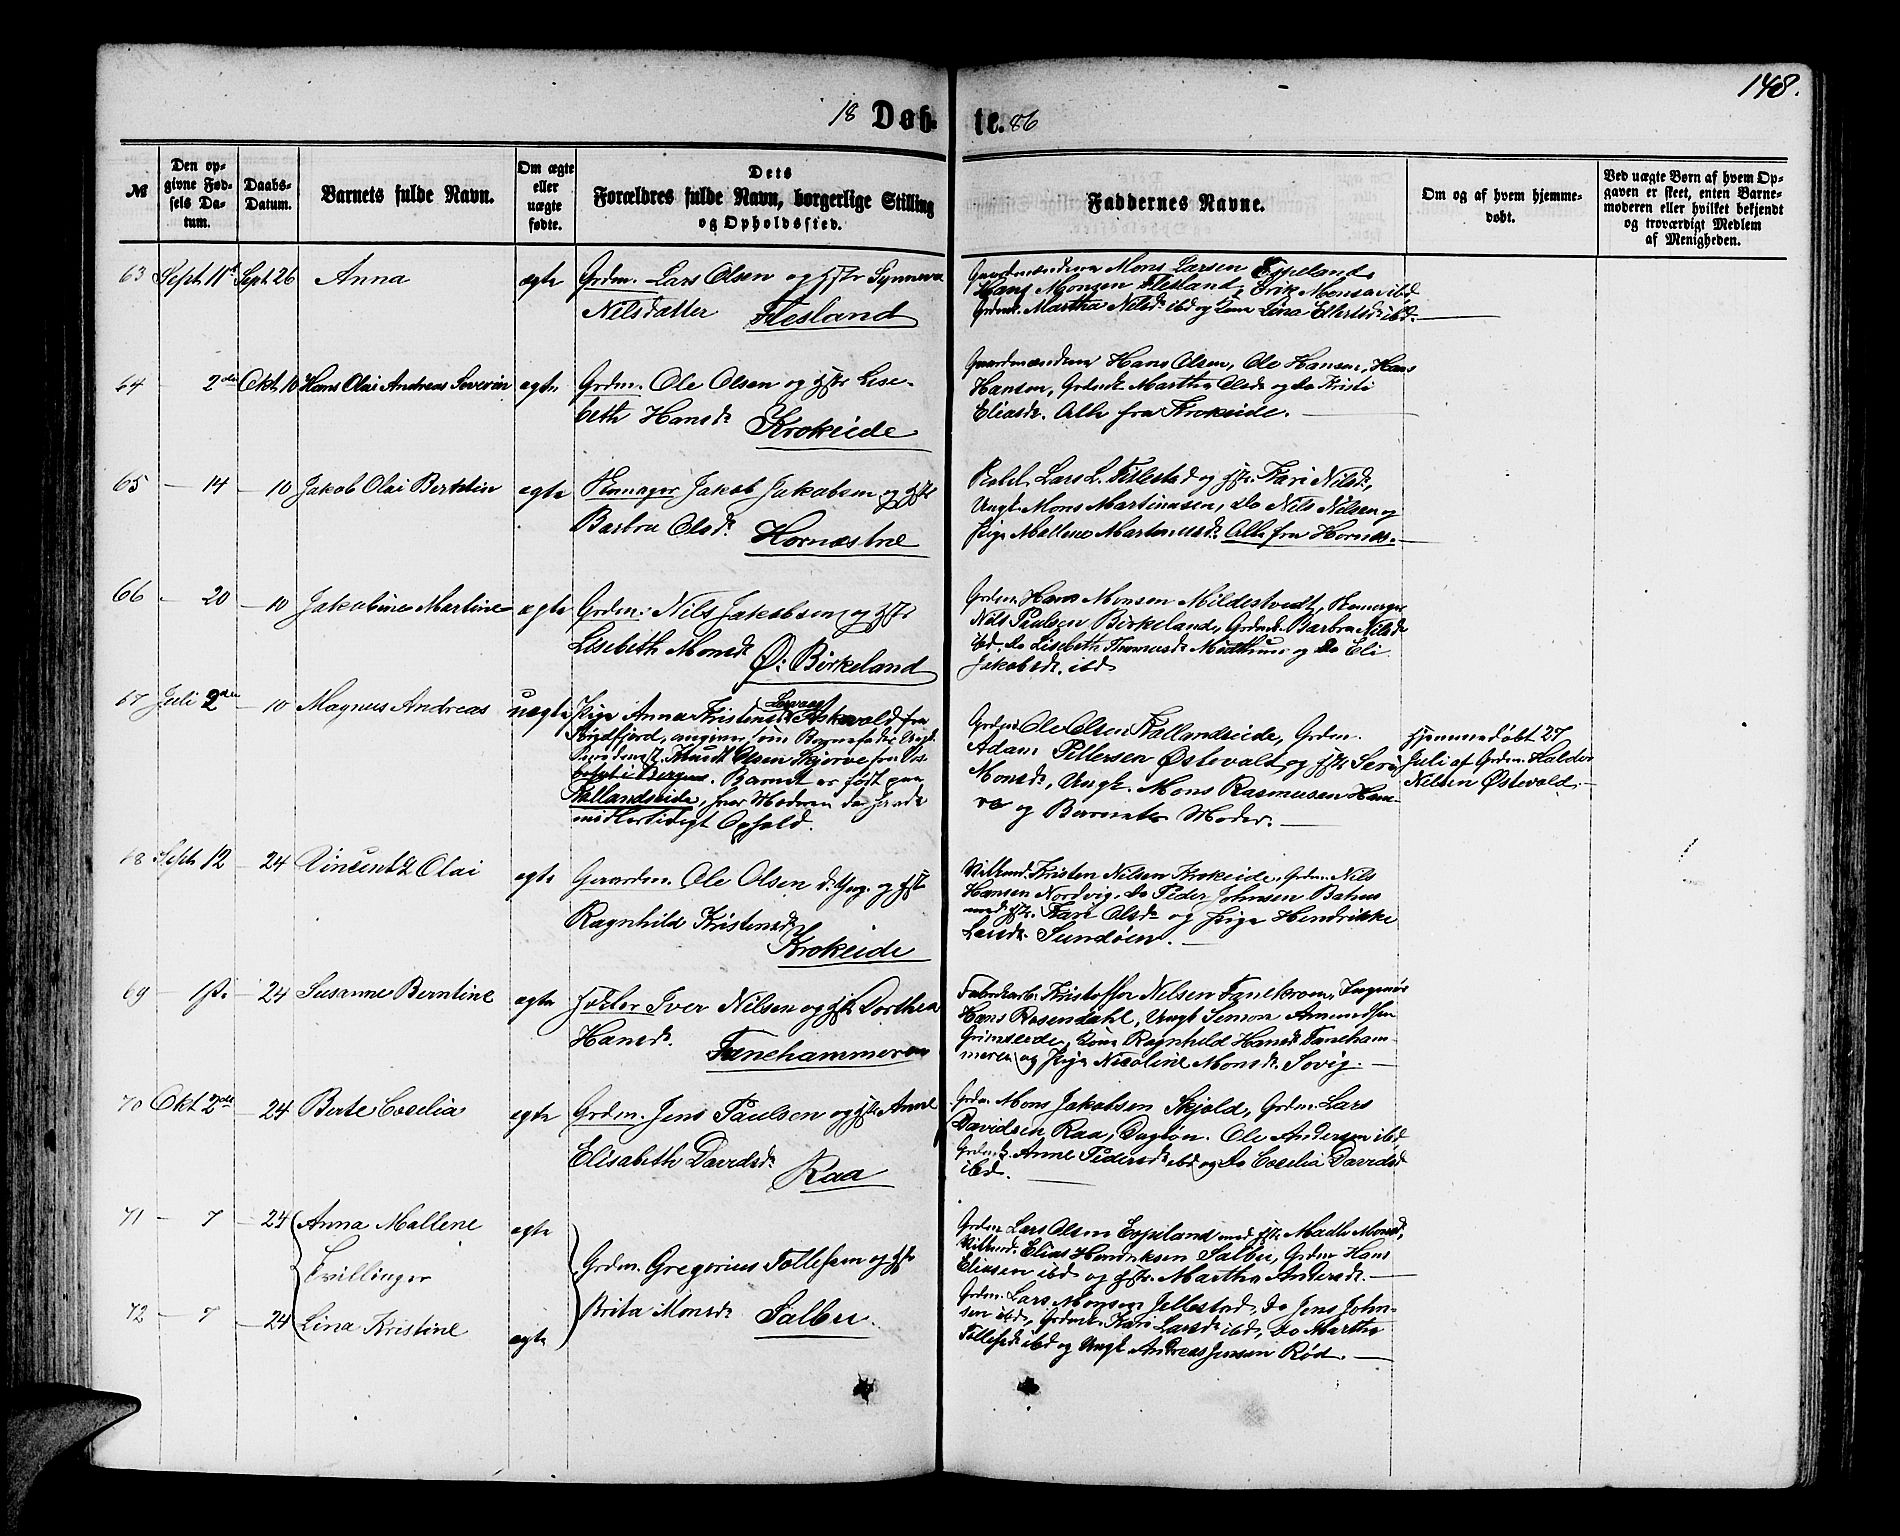 148.
18 Døb- te. 86
№
Den op-
givne Fød-
sels Da-
tum.
Daabs-
Datum.
Barnets fulde Navn.
Om ægte
eller
uægte
fødte.
Dets
Forældres fulde Navn, borgerlige Stilling
og Opholdssted.
Faddernes Navne.
Om og af hvem hjemme-
døbt.
Ved uægte Børn af hvem Op-
gaven er skeet, enten Barne-
moderen eller hvilket bekjendt
og troværdigt Medlem
af Menigheden.
63 Sept. 11te Sept. 26 Anna ægte Grdm. Lars Olsen og Hstr Synneva
Nilsdatter Flesland
Gaardmændene Mons Larsen Espeland,
Hans Monsen Flesland, Erik Monsen ibd,
Grdmk. Martha Nilsd. ibd og Kone Lina Ellertsd. ibd.
64 — 2den Okt. 10 Hans Olai Andreas Severin ægte Grdm. Ole Olsen og Hstr Lise-
beth Hansd. Krokeide
Gaardmændene Hans Olsen, Ole Hansen, Hans
Hansen, Grdmk. Martha Olsd. og Do Kristi
Eliasd. Alle fra Krokeide.
65 — 14 — 10 Jakob Olai Berntin ægte Remager Jakob Jakobsen og Hstr
Barbra Olsd. Hornæstræ
Lars L. Titlestad og Hstr. Kari Nilsd.,
Ungk. Mons Martinusen, Do Nils Nilsen og
Pige Mallene Martinusd. Alle fra Hornæs.
66 — 20 — 10 Jakobine Martine ægte Grdm. Nils Jakobsen og Hstr
Lisebeth Monsd. Ø: Birkeland
Grdm. Hans Monsen Mildestvedt, Remager
Nils Paulsen Birkeland, Grdmk. Barbra Nilsd.
ibd, Do Lisebeth Thomasd. Midttun og Do Eli
Jakobsd. ibd
67 Juli 2den — 10 Magnus Andreas uægte Pige Anna Kristensd. Askevold fra
angiver som Barnefader Ungk.
Knudt Olsen Skjerve fra Vos-
Bergen. Barnet er født paa
Kallandseide, hvor Moderen da havde
midlertidigt Ophold.
Grdm. Ole Olsen Kallandseide, Grdm.
Adam Pettersen Østevold og Hstr Seri
Monsd., Ungk. Mons Rasmusen Ham-
re og Barnets Moder.
Hjemmedøbt 27
Juli af Grdm. Haldor
Nilsen Østevold.
68 Sept. 12 — 24 Vincentz Olai ægte Gaardm. Ole Olsen d. Yng. og Hstr
Ragnhild Kristensd.
Krokeide
Kristen Nilsen Krokeide, Grdm. Nils
Hansen Nordvig, Do Peder Johnsen Bahus
med Hstr. Kari Olsd. og Pige Hendrikke
Larsd. Sundøen.
69 — 24 Susanne Berntine ægte Iver Nilsen og Hstr Dorthea
Hansd. Fanehammeren
Fabrikarb. Kristoffer Nilsen Fanekroen, Ingeniør
Hans Rosendahl, Ungk Simon Amundsen
Grimseide, Kone Ragnhild Hansd. Faneham-
meren og Pige Nicoline Monsd. Søvig.
70 Okt. 2den — 24 Berte Cecelia ægte Grdm. Jens Paulsen og Hstr Anne
Elisabeth Davidsd. Raa
Grdm. Mons Jakobsen Skjold, Grdm. Lars
Davidsen Raa, Dagløn. Ole Andersen ibd
Grdmk. Anne Pedersd. ibd og Do Cecelia Davidsd.
ibd.
71 — 7 — 24 Anna Mallene ægte
Tvillinger
Grdm. Gregorius Tollefsen og Hstr
Brita Monsd. Salbu.
Grdm. Lars Olsen Espeland med Hstr. Madle Monsd.,
Elias Hendriksen Salbu, Grdm Hans
Eliasen ibd og Hstr. Martha Andersd.
72 — 7 — 24 Lina Kristine ægte
Grdm. Lars Monsen Jellestad, Do Jens John-
sen ibd, Grdmk. Kari Larsd. ibd, Do Martha
Tollefsd. ibd og Ungk. Andreas Jensen Rød.